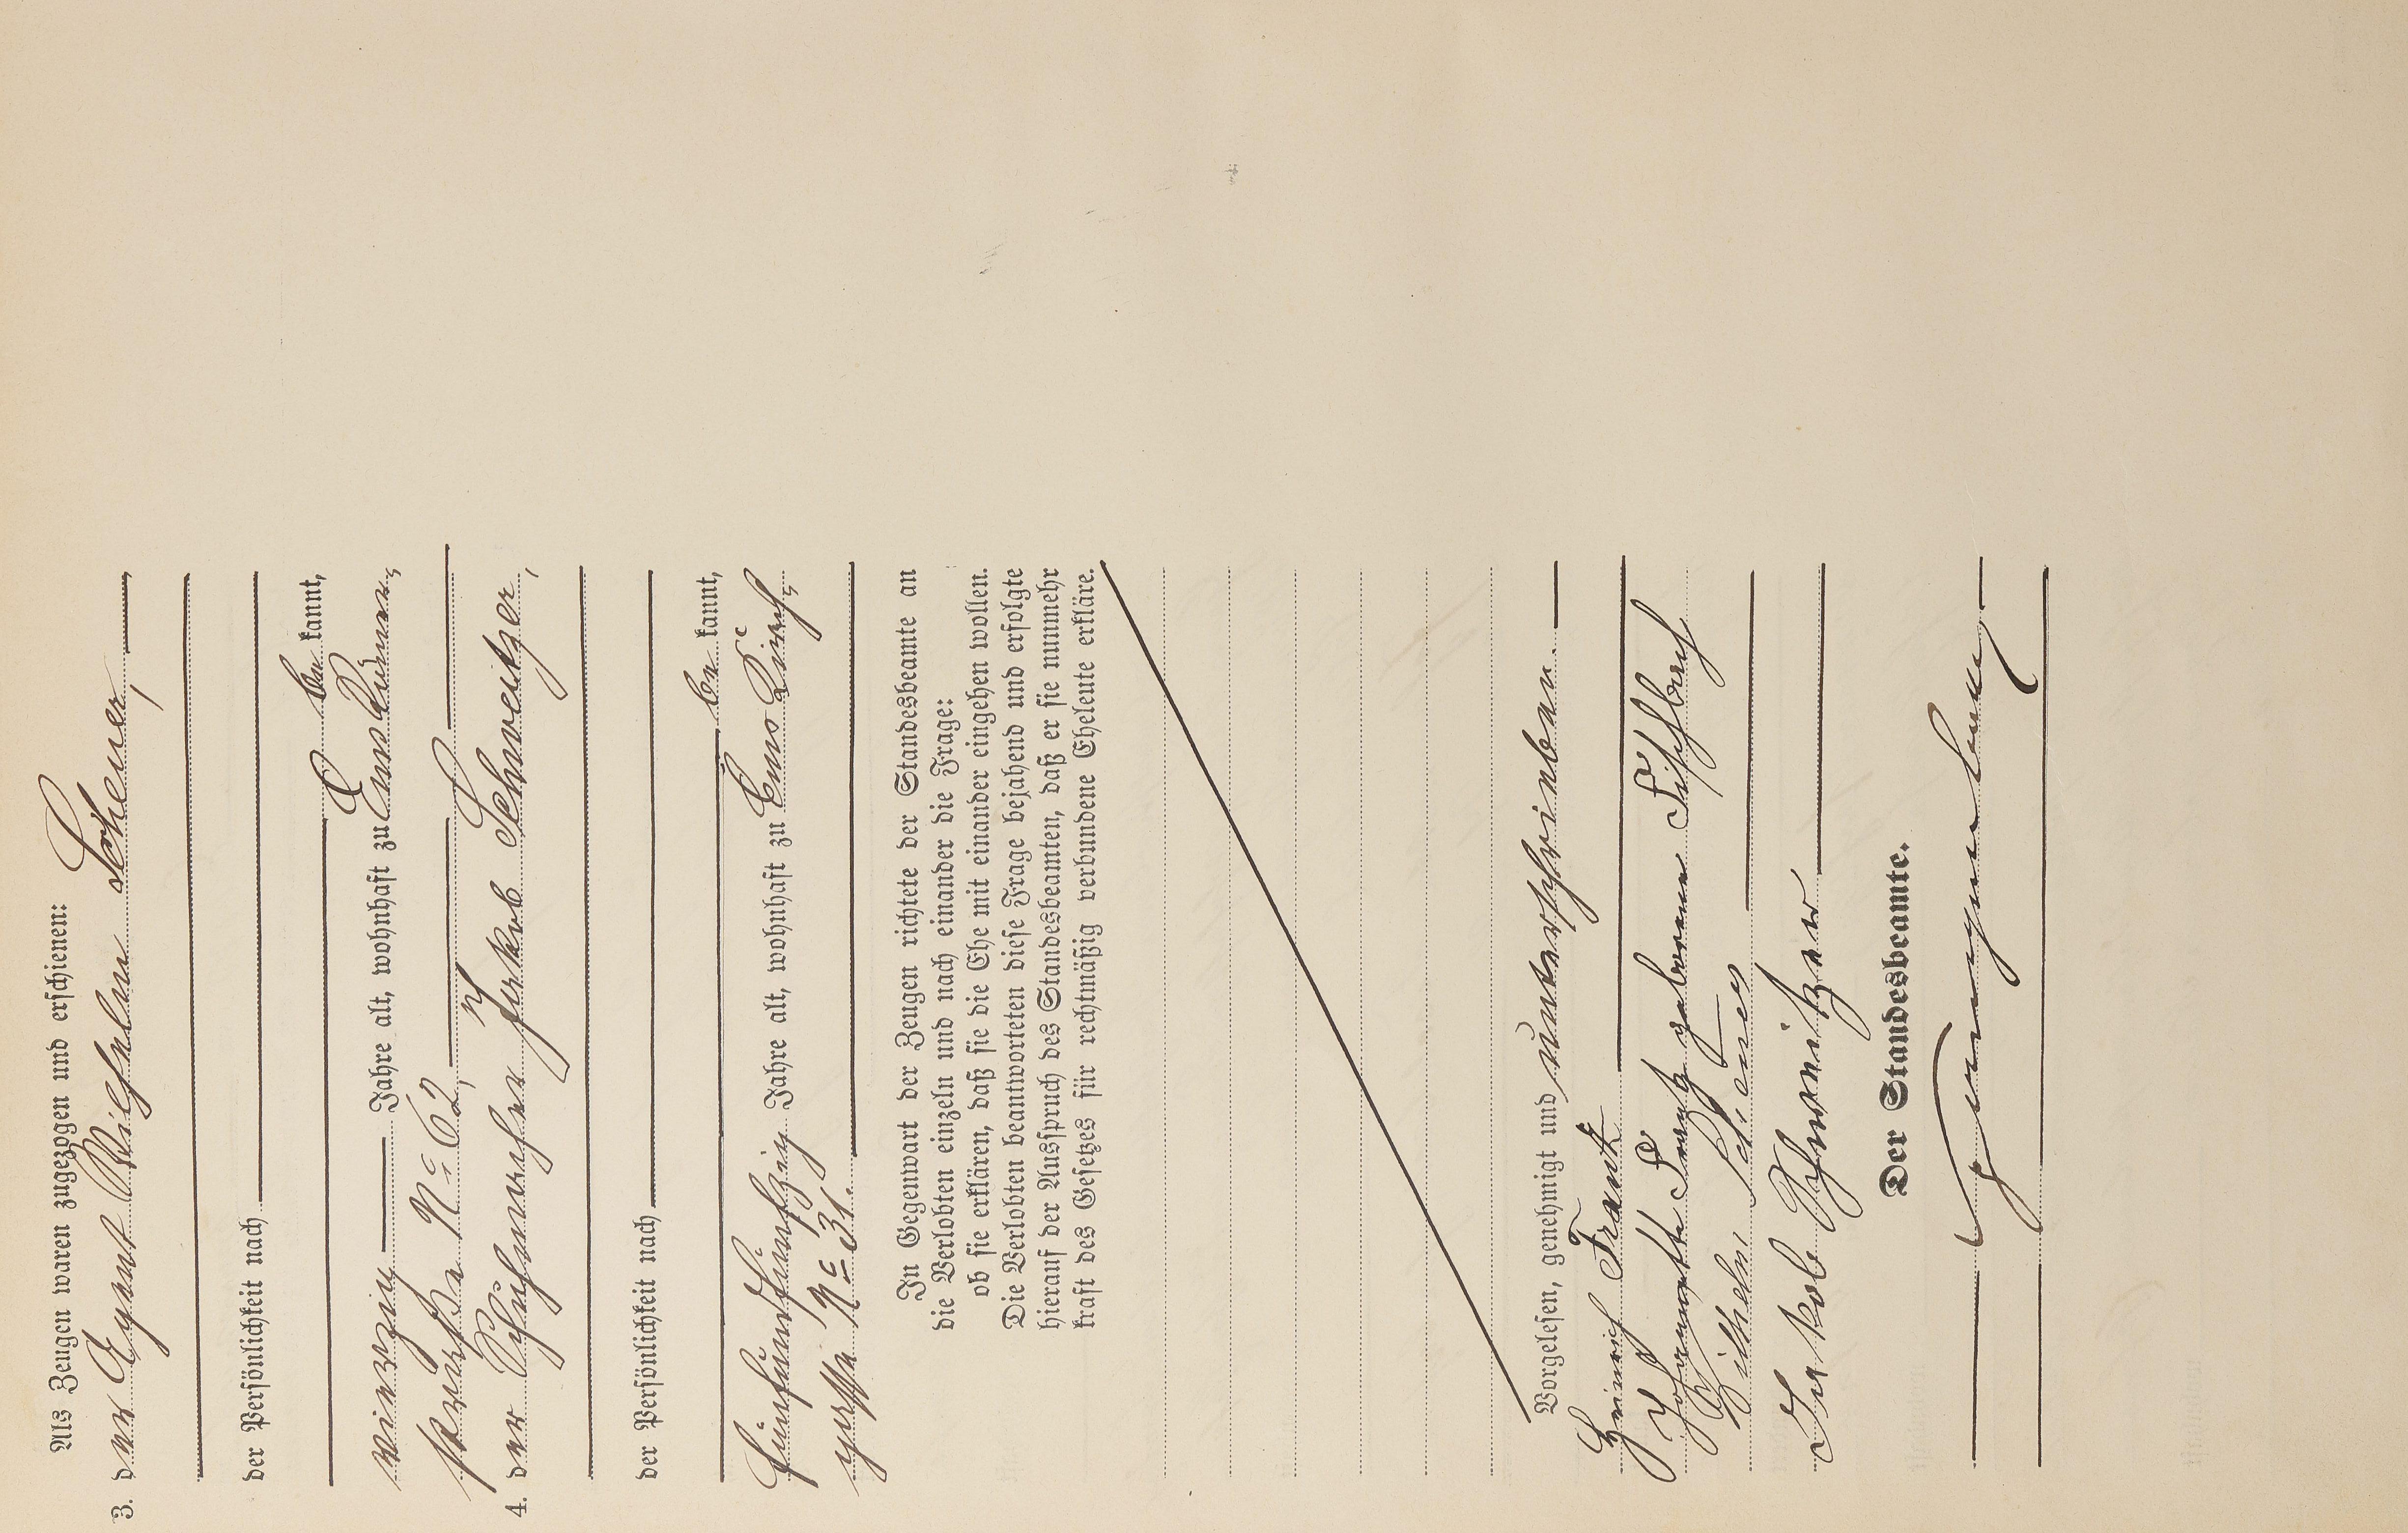 Als Zeugen waren zugezogen und erschienen:
3. der Agent Wilhelm Scheuer,
der Persönlichkeit nach
be kannt,
vierzig Jahre alt, wohnhaft zu
straße No 62,
4. der Schuhmacher Jakob Schweitzer,
der Persönlichkeit nach
be kannt,
fünfundfünfzig Jahre alt, wohnhaft zu Ems
gasse No 31.
In Gegenwart der Zeugen richtete der Standesbeamte an
die Verlobten einzeln und nach einander die Frage:
ob sie erklären, daß sie die Ehe mit einander eingehen wollen.
Die Verlobten beantworteten diese Frage bejahend und erfolgte
hierauf der Ausspruch des Standesbeamten, daß er sie nunmehr
kraft des Gesetzes für rechtmäßig verbundene Eheleute erkläre.
Vorgelesen, genehmigt und unterschrieben.
Heinrich Frank
geborene Fischbach
Wilhelm Scheuer
Jakob Schweitzer
Der Standesbeamte.